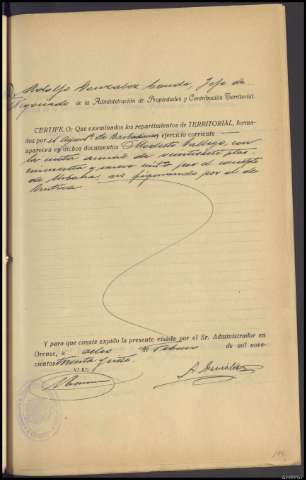 Dn Adolfo González Conde, Jefe de
Negociado de la Administración de Propiedades y Contribución Territorial.
CERTIFICO: Que examinados los repartimientos de TERRITORIAL, forma-
dos por el Aymtº de Barbadanes ejercicio corriente
aparece en dichos documentos Modesto Vallejo, con
la cuota anual de veintisiete ptas
cincuenta y nueve cntos por el concepto
de Urbana, no figurando por el de
Rústica.
Y para que conste expido la presente visada por el Sr. Administrador en
Orense, a ocho de Febrero de mil nove-
cientos treinta y siete.
V.º B.º
A. González